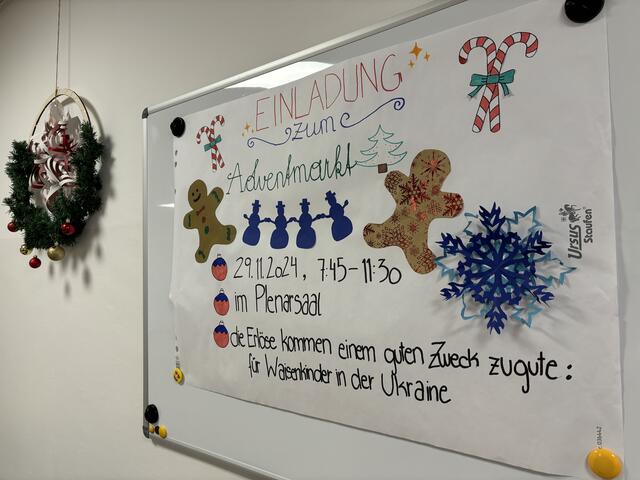 EINLADUNG
zum
Adventmarkt
29.11.2024, 7:45-11:30
im Plenarsaal
die Erlöse kommen einem guten Zweck zugute:
für Waisenkinder in der Ukraine
Ursus
Staufen